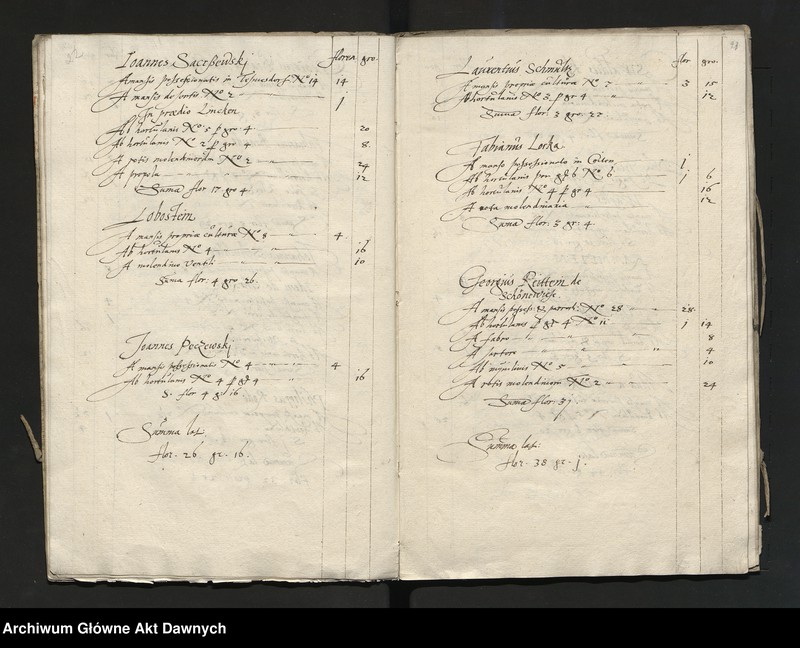 florea gro.
Ioannes Sacrßewskj
A mansis possessionatis in No 14 14
A mansis desertis No 2 1
In praedio Lincken
Ab hortulanis No 5 p gro. 4. 20
Ab hortulanis No 2 p gro. 4 8
A rotis molendinorum No 2 24
A propola 12
Suma flor 17 gro 4
Lobostein
A mansis propriae culturae No 8 4
Ab hortulanis No 4 16
A molendino ventili 10
Suma flor: 4 gro 26.
Joannes Peczewskj
A manso possessionatis No 4 4
Ab hortulanis No 4 p gr 4 16
S. flor 4 gr 16
Summa lat:
flor. 26 gr. 16.
flor gro.
Laurentius Schmultz
A mansis propriae culturae No 7 3 15
Ab hortulanis No 3 p gr 4 12
Suma flor: 3 gro. 27
Fabianus Locka
A manso possessionato in 1
Ab hortulanis per gr 6 No 6 1 6
Ab hortulanis No 4 p gr 4 16
A rota molendinaria 12
Suma flor: 3 gr 4.
Georgius Reittein de
Schönewiese
A mansis possess: No 28 28.
Ab hortulanis p gr 4 No 11 1 14
A fabro 8
A sartore 4
Ab inquilinis No 5 10
A rotis molendinorum No 2 24
Suma flor: 31
Summa lat:
flor. 38 gr. j.
Archiwum Główne Akt Dawnych